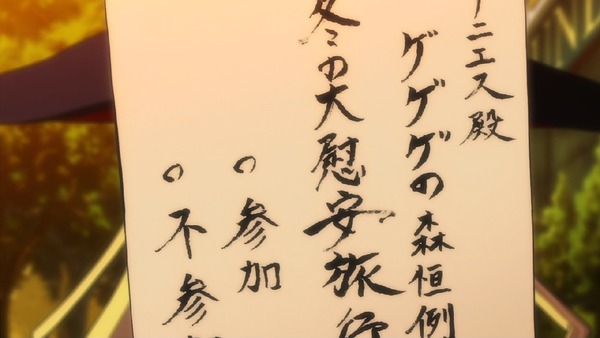 ニエス殿
ゲゲゲの森恒例
冬の大慰安旅行
○参加
○不参加